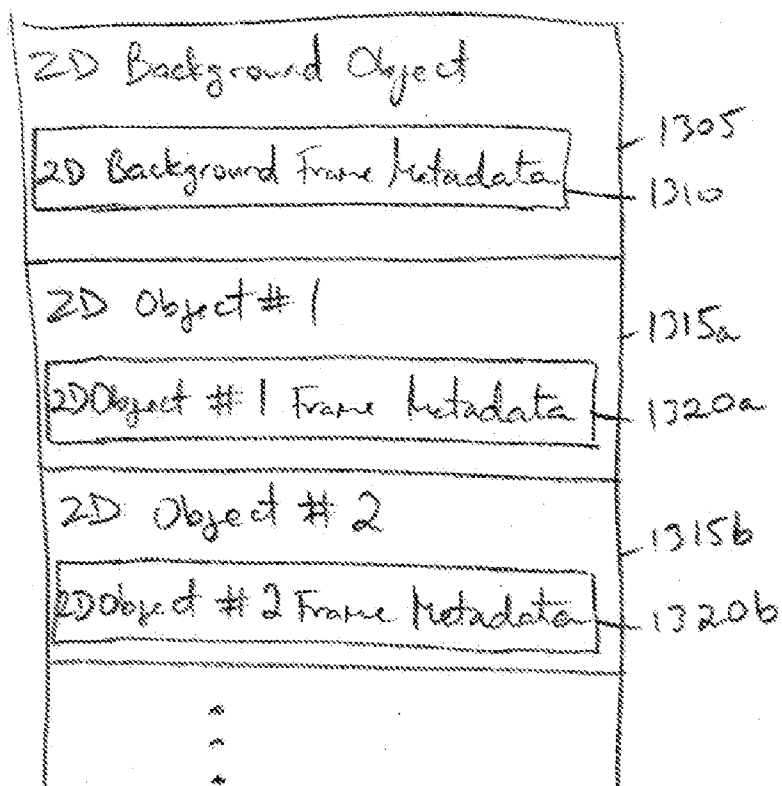 2D Background Object
1305
2D Background Frame Metadata
1310
2D Object # 1
1315a
2D Object # 1 Frame Metadata
1320a
2D Object # 2
1315b
2D Object # 2 Frame Metadata
1320b